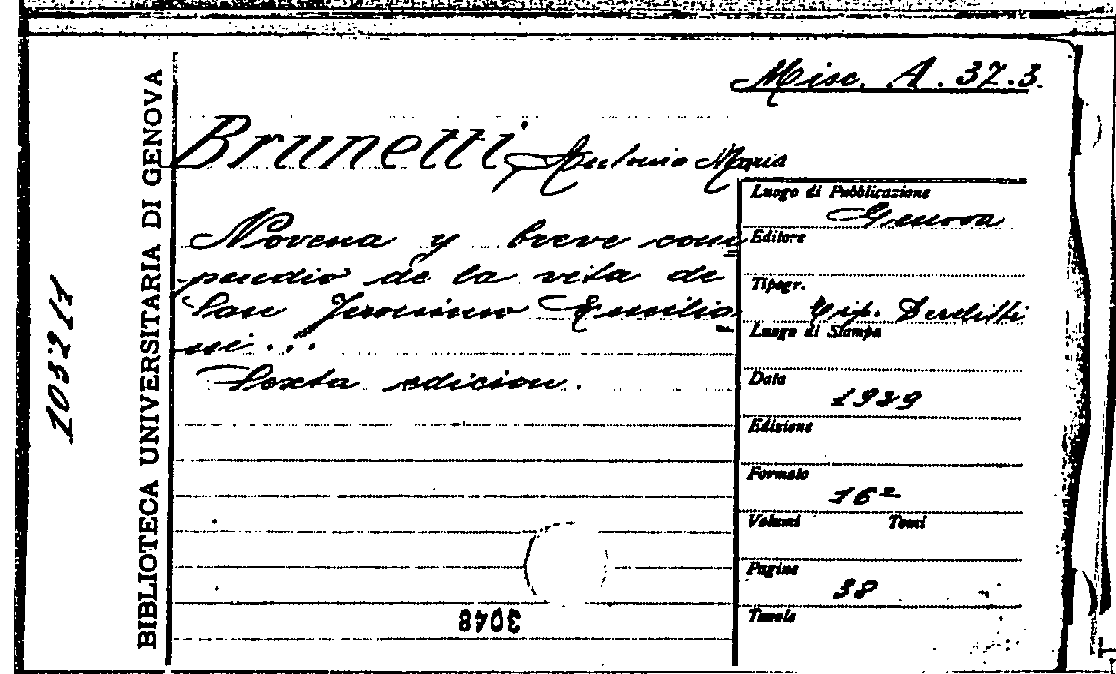 Misc. A. 37.3.
Brunetti, Antonio Maria
Novena y breve com-
pendio de la vita de
San Jeronimo Emilia-
ni...
Sexta edicion.
Luogo di Pubblicazione
Genova
Editore
Tipogr.
Tip. Derelitti
Luogo di Stampa
Data
1929
Edizione
Formato
16º
Volumi Tomi
Pagine
38
Tavole
3048
BIBLIOTECA UNIVERSITARIA DI GENOVA
103211